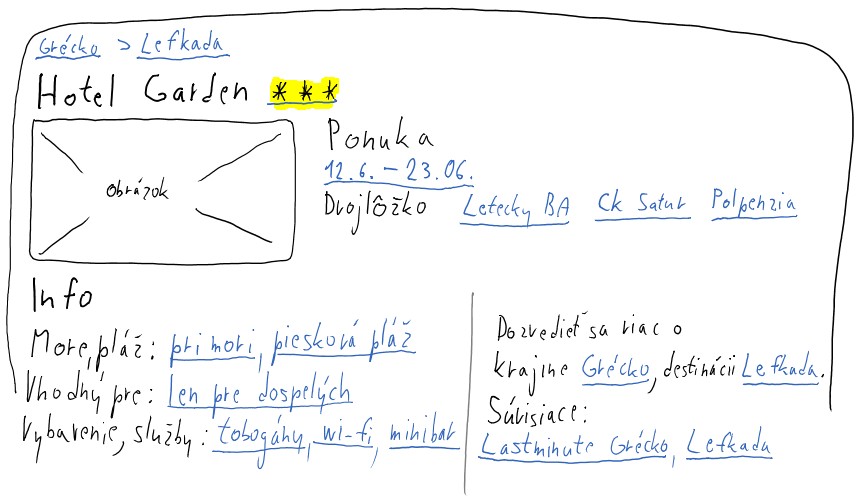 Grécko > Lefkada
Hotel Garden ***
obrázok
Ponuka
12.6. – 23.06.
Dvojlôžko Letecky BA Ck Satur Polpenzia
Info
More, pláž: pri mori, piesková pláž
Vhodný pre: Len pre dospelých
Vybavenie, služby: tobogány, wi-fi, minibar
Dozvedieť sa viac o
krajine Grécko, destinácii Lefkada.
Súvisiace:
Lastminute Grécko, Lefkada